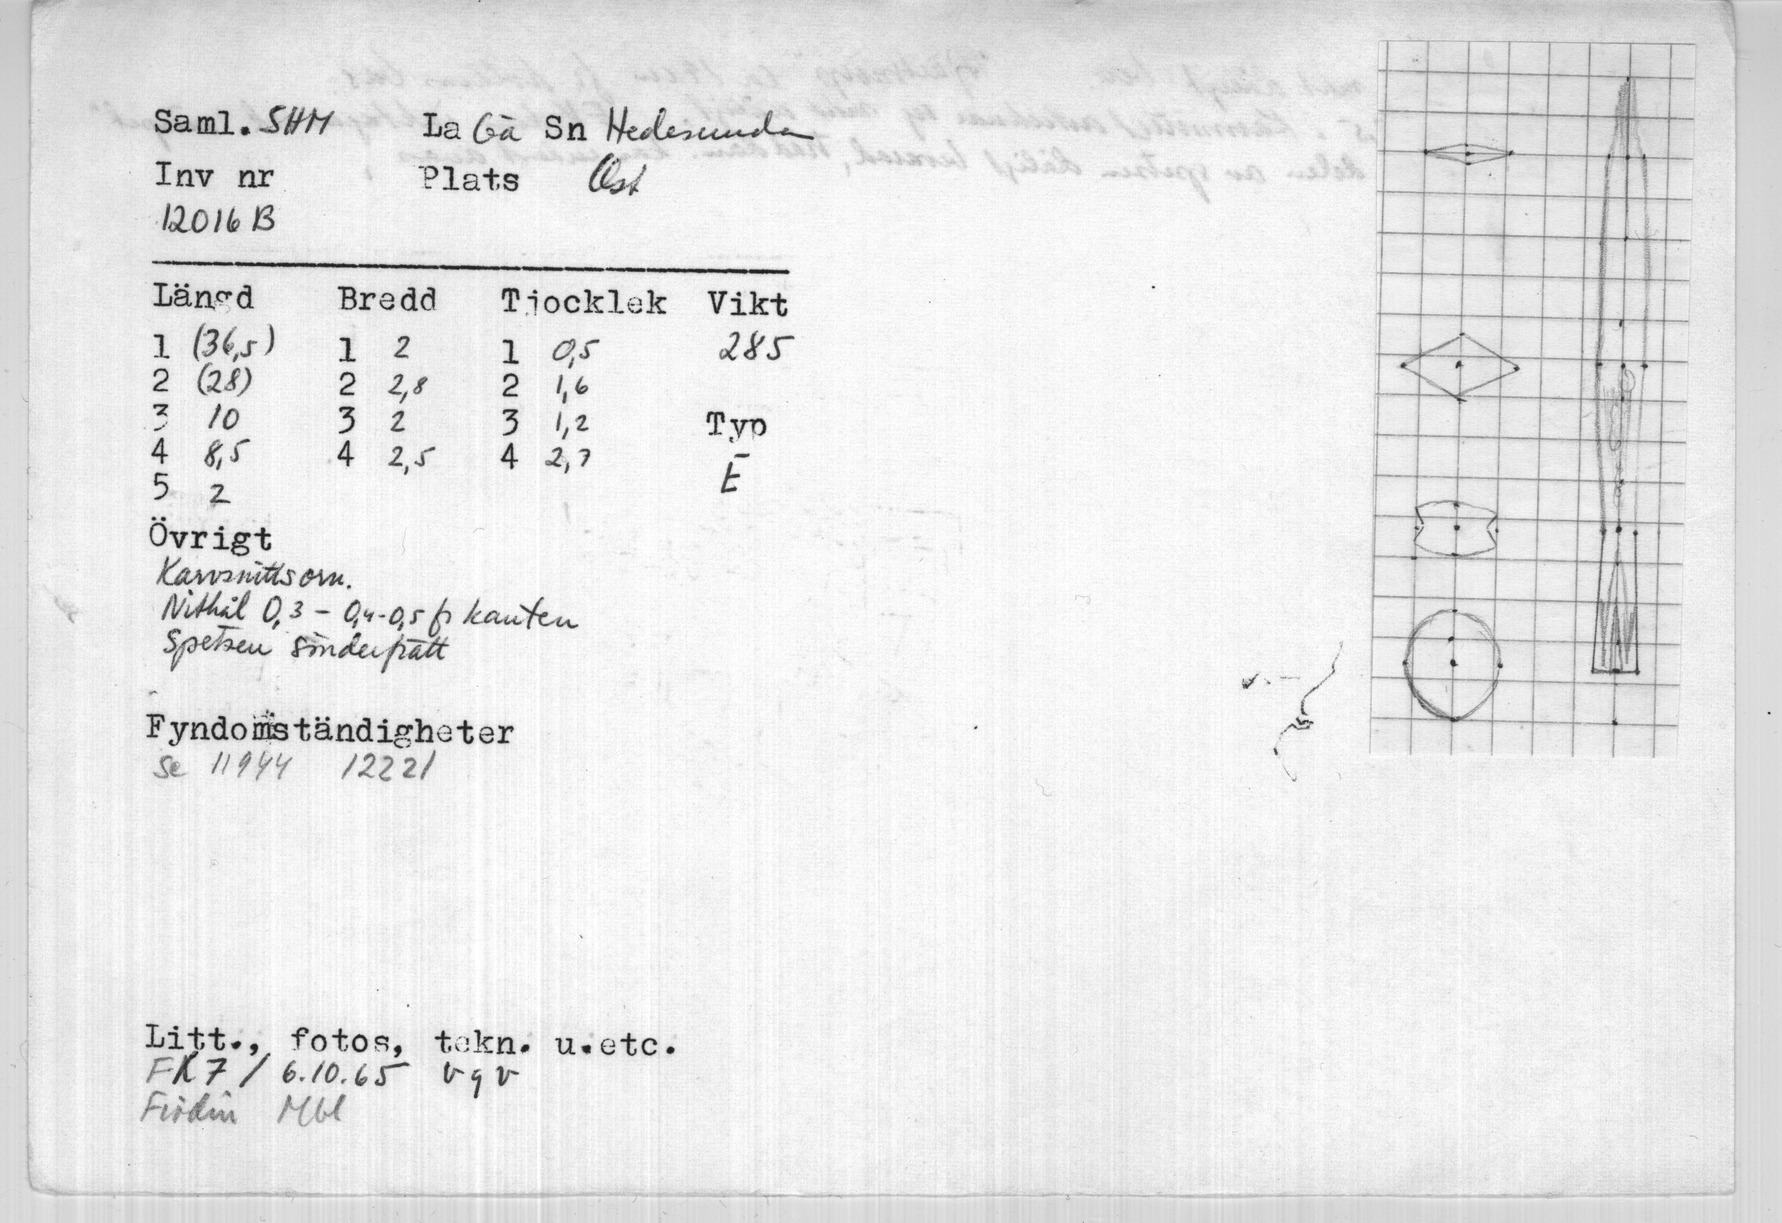 Saml. SHM La Gä Sn Hedesunda
Inv nr Plats Öst
12016 B
Längd Bredd Tjocklek Vikt
1 (36,5) 1 2 1 0,5 285
2 (28) 2 2,8 2 1,6
3 10 3 2 3 1,2 Typ
4 8,5 4 2,5 4 2,7 E
5 2
Övrigt
Karvsnittsorn.
Nithål 0,3 - 0,4-0,5 fr kanten
Spetsen sönderfrätt
Fyndomständigheter
se 11944 12221
Litt., fotos, tekn. u.etc.
FK 7 / 6.10.65 v q v